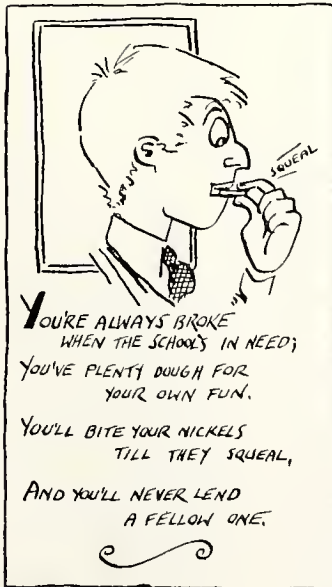 SQUEAL
YOU'RE ALWAYS BROKE
WHEN THE SCHOOL'S IN NEED;
YOU'VE PLENTY DOUGH FOR
YOUR OWN FUN.
YOU'LL BITE YOUR NICKELS
TILL THEY SQUEAL,
AND YOU'LL NEVER LEND
A FELLOW ONE.